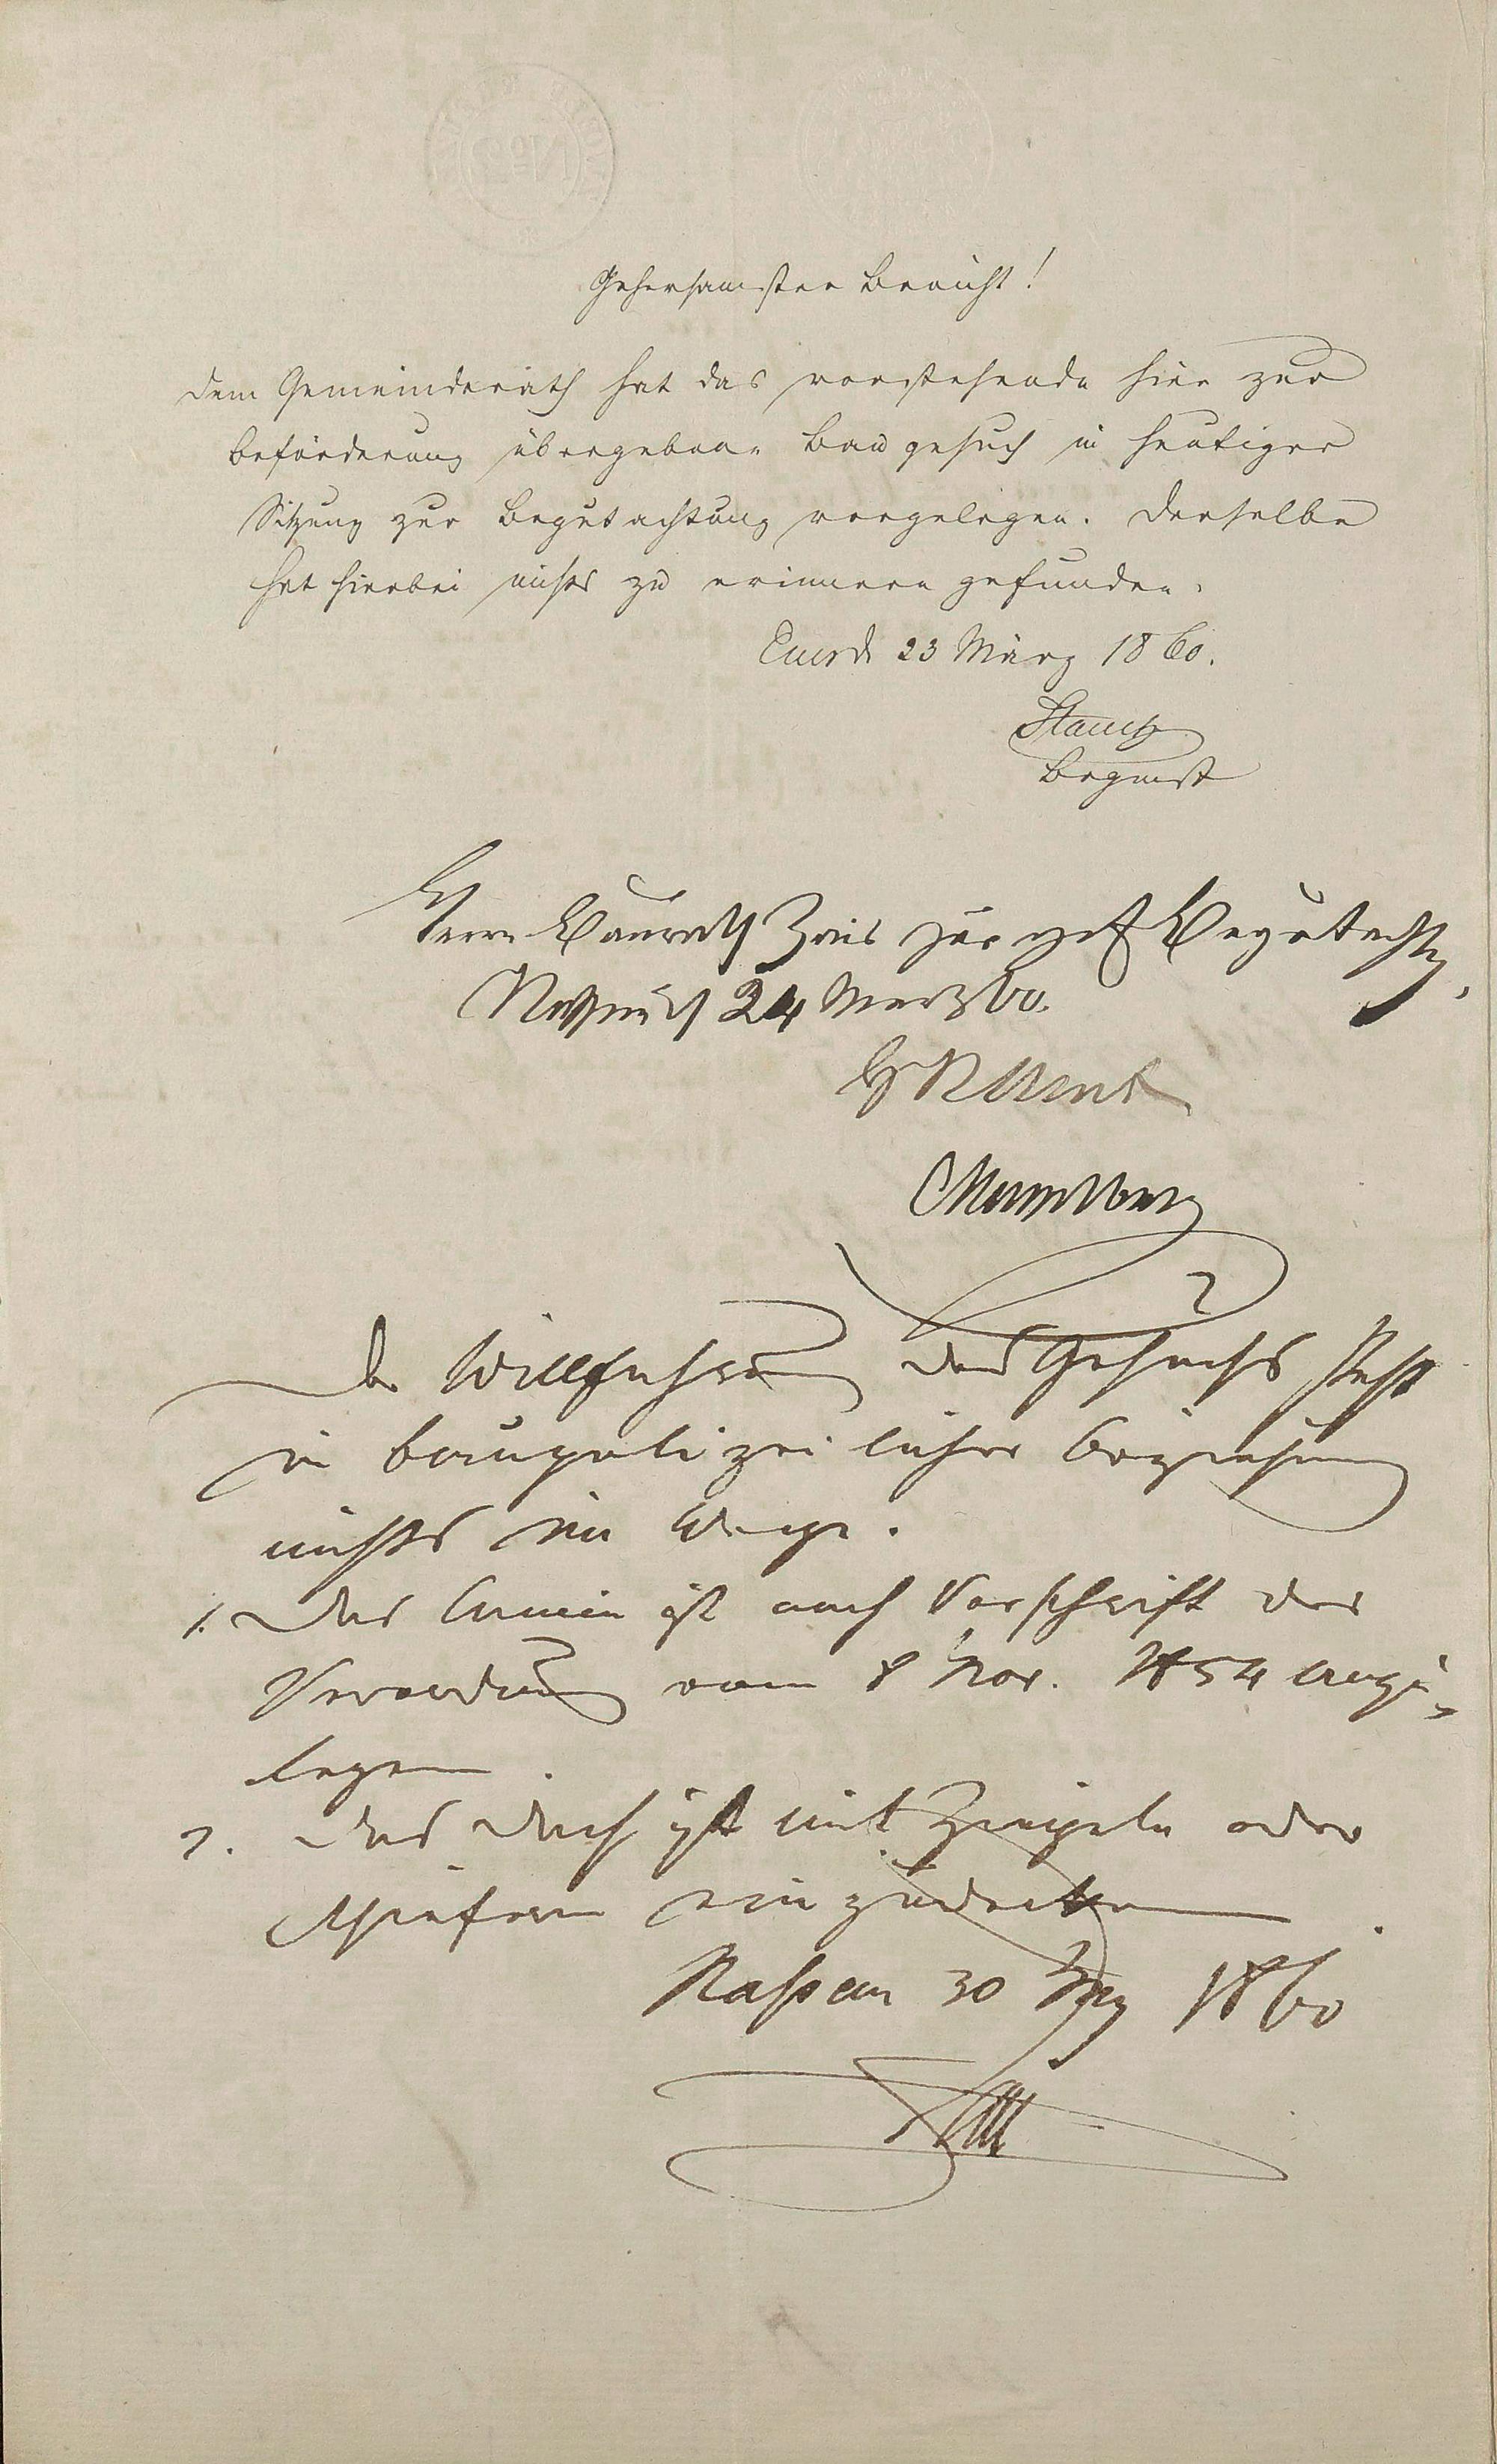 Gehorsamster Bericht!
Dem Gemeinderath hat das vorstehende hier zur
Beförderung übergebene Baugesuch in heutiger
Sitzung zur Begutachtung vorgelegen. Derselbe
hat hierbei nichts zu erinnern gefunden.
23 März 1860.
Herrn Baurath Zais zur gef Begutachtg,
24 März 60.
HN Amt
Der Willfahrung des Gesuchs steht
in baupolizeilicher Beziehung
nichts im Wege.
1. Das Camin ist nach Vorschrift der
Verordnung vom 8 Nov. 1854 anzu-
legen.
2. Das Dach ist mit Ziegeln oder
Schiefern einzudecken.
Nassau 30 Mrz 1860